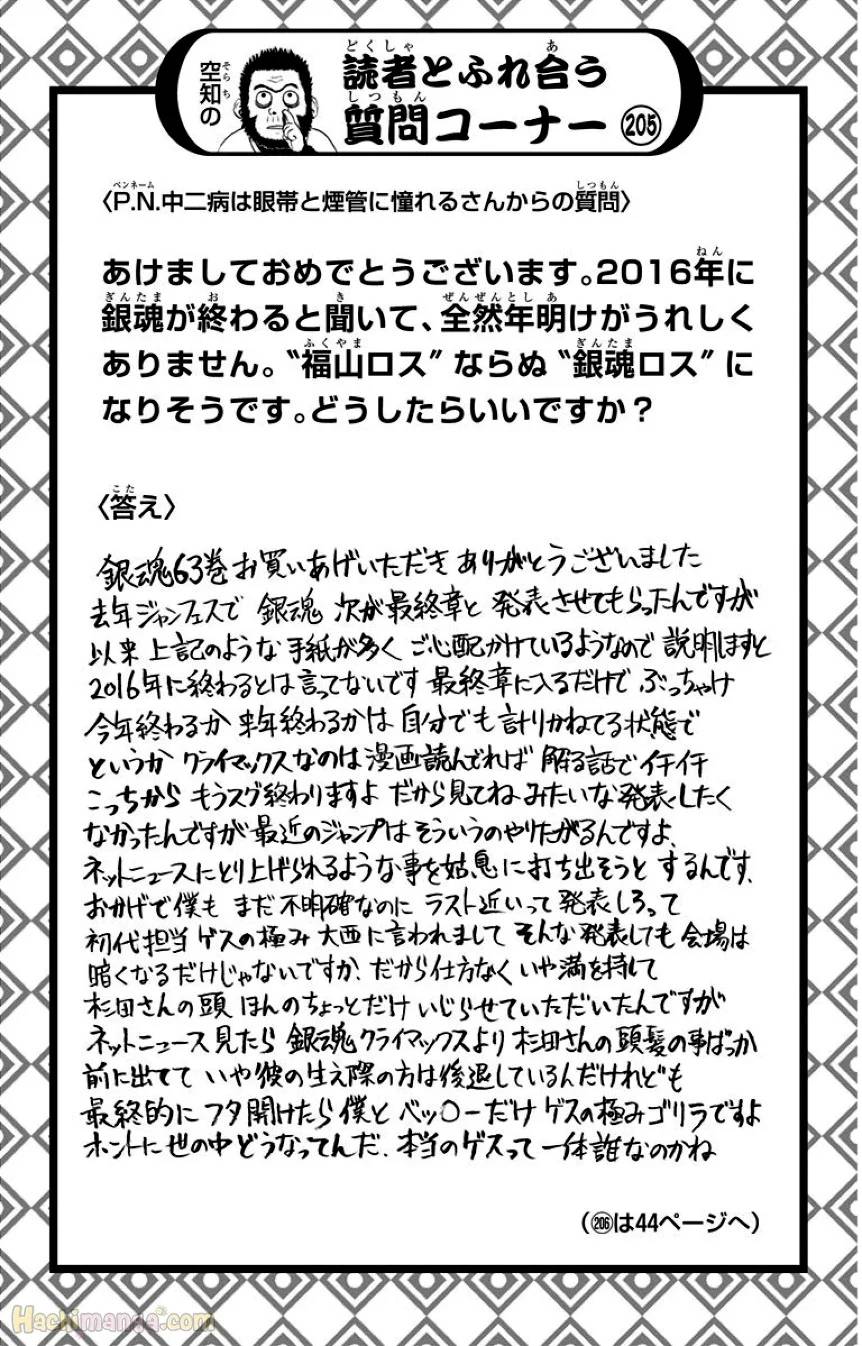 空知の
読者とふれ合う
質問コーナー 205
〈P.N.中二病は眼帯と煙管に憧れるさんからの質問〉
あけましておめでとうございます。2016年に
銀魂が終わると聞いて、全然年明けがうれしく
ありません。〝福山ロス〟ならぬ〝銀魂ロス〟に
なりそうです。どうしたらいいですか？
〈答え〉
銀魂63巻お買いあげいただき ありがとうございました
去年ジャンフェスで 銀魂 次が最終章と 発表させてもらったんですが
以来 上記のような 手紙が多く ご心配かけているようなので 説明しますと
2016年に終わるとは言ってないです 最終章に入るだけで ぶっちゃけ
今年終わるか 来年終わるかは 自分でも計りかねてる状態で
というか クライマックスなのは漫画読んでれば 解る話でイチイチ
こっちから もうスグ終わりますよ だから見てね みたいな発表したく
なかったんですが 最近のジャンプは そういうのやりたがるんですよ、
ネットニュースにとり上げられるような事を姑息に打ち出そうと するんです、
おかげで僕も まだ不明確なのに ラスト近いって発表しろって
初代担当 ゲスの極み 大西に言われまして そんな発表しても 会場は
暗くなるだけじゃないですか、だから仕方なく いや満を持して
杉田さんの頭 ほんのちょっとだけ いじらせていただいたんですが
ネットニュース見たら 銀魂クライマックスより 杉田さんの頭髪の事ばっか
前に出てて いや彼の生え際の方は後退しているんだけれども
最終的に フタ開けたら僕と ベッ〇ーだけ ゲスの極みゴリラですよ
ホントに 世の中どうなってんだ、本当のゲスって 一体誰なのかね
(206は44ページへ)
Hachimanga.com